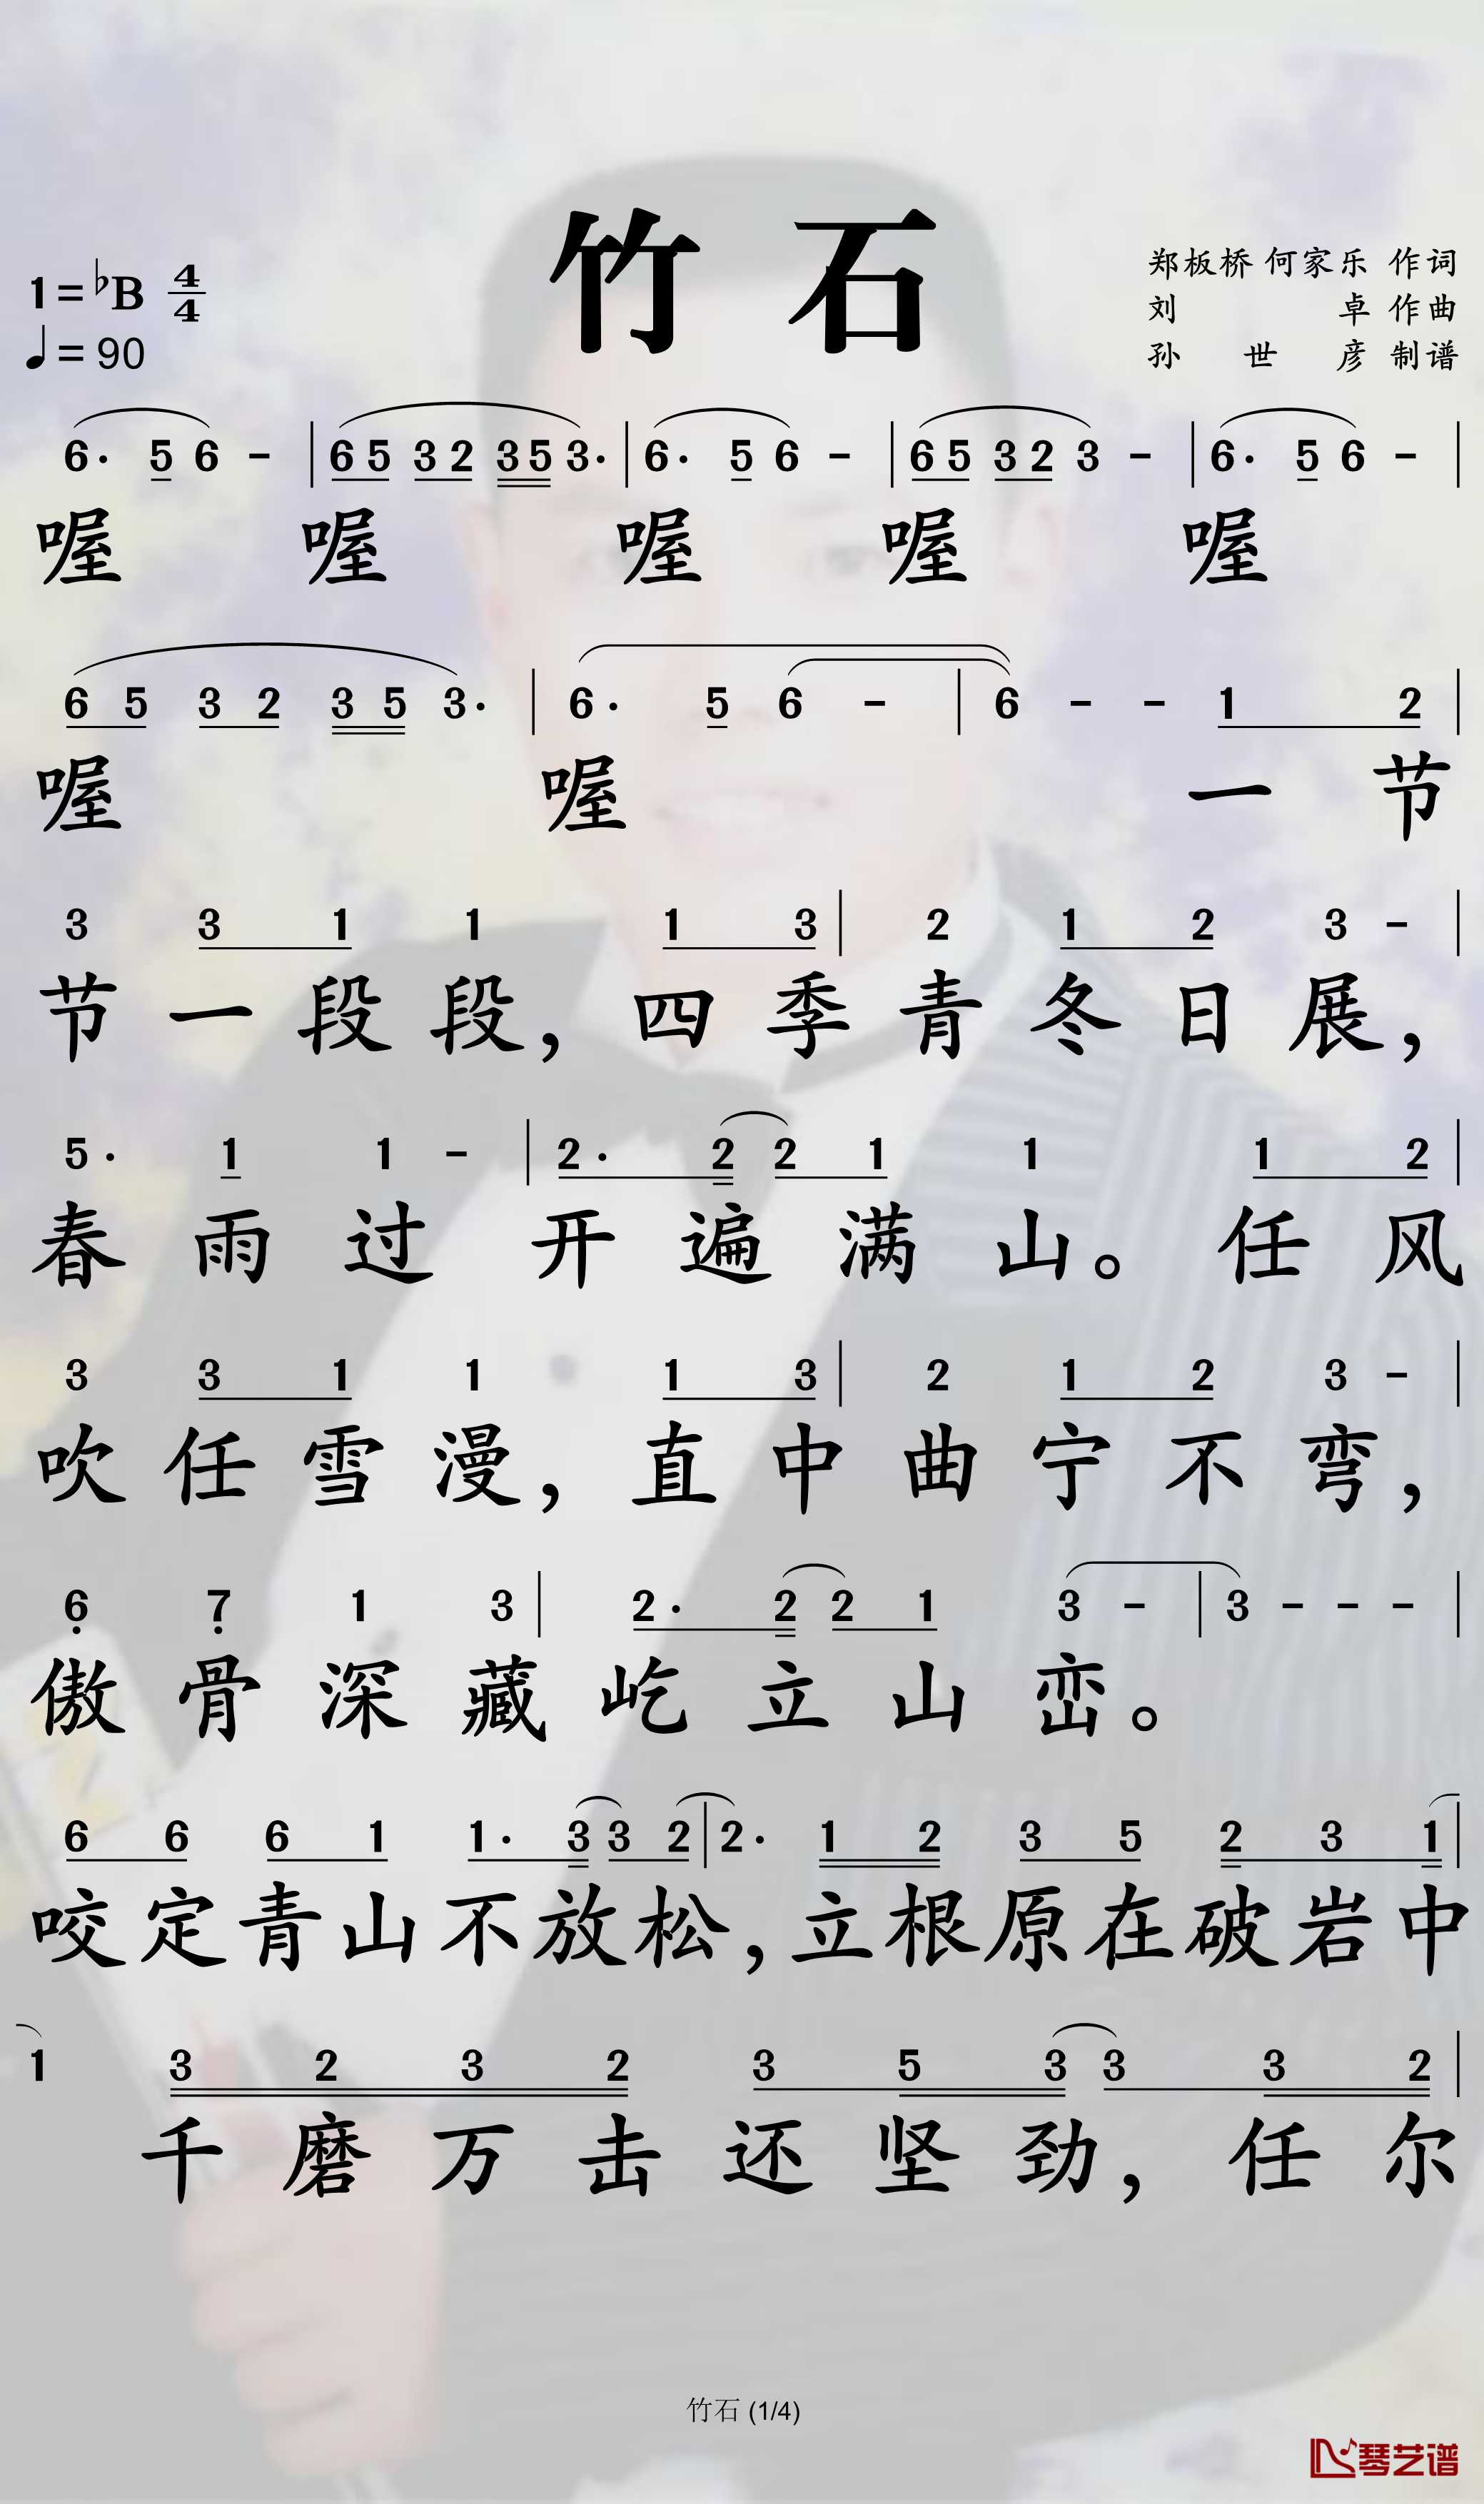 竹石
1=♭B 4/4
♩=90
郑板桥 何家乐 作词
刘卓 作曲
孙世彦 制谱
6· 5 6 - | 6 5 3 2 3 5 3· | 6· 5 6 - | 6 5 3 2 3 - | 6· 5 6 - |
喔 喔 喔 喔 喔
6 5 3 2 3 5 3· | 6· 5 6 - | 6 - - 1 2 |
喔 喔 一 节
3 3 1 1 1 3 | 2 1 2 3 - |
节 一 段 段， 四 季 青 冬 日 展，
5· 1 1 - | 2· 2 2 1 1 1 2 |
春 雨 过 开 遍 满 山。 任 风
3 3 1 1 1 3 | 2 1 2 3 - |
吹 任 雪 漫， 直 中 曲 宁 不 弯，
6 7 1 3 | 2· 2 2 1 3 - | 3 - - - |
傲 骨 深 藏 屹 立 山 峦。
6 6 6 1 1· 3 3 2 | 2· 1 2 3 5 2 3 1 |
咬 定 青 山 不 放 松， 立 根 原 在 破 岩 中
1 3 2 3 2 3 5 3 3 3 2 |
千 磨 万 击 还 坚 劲， 任 尔
竹石 (1/4)
琴艺谱